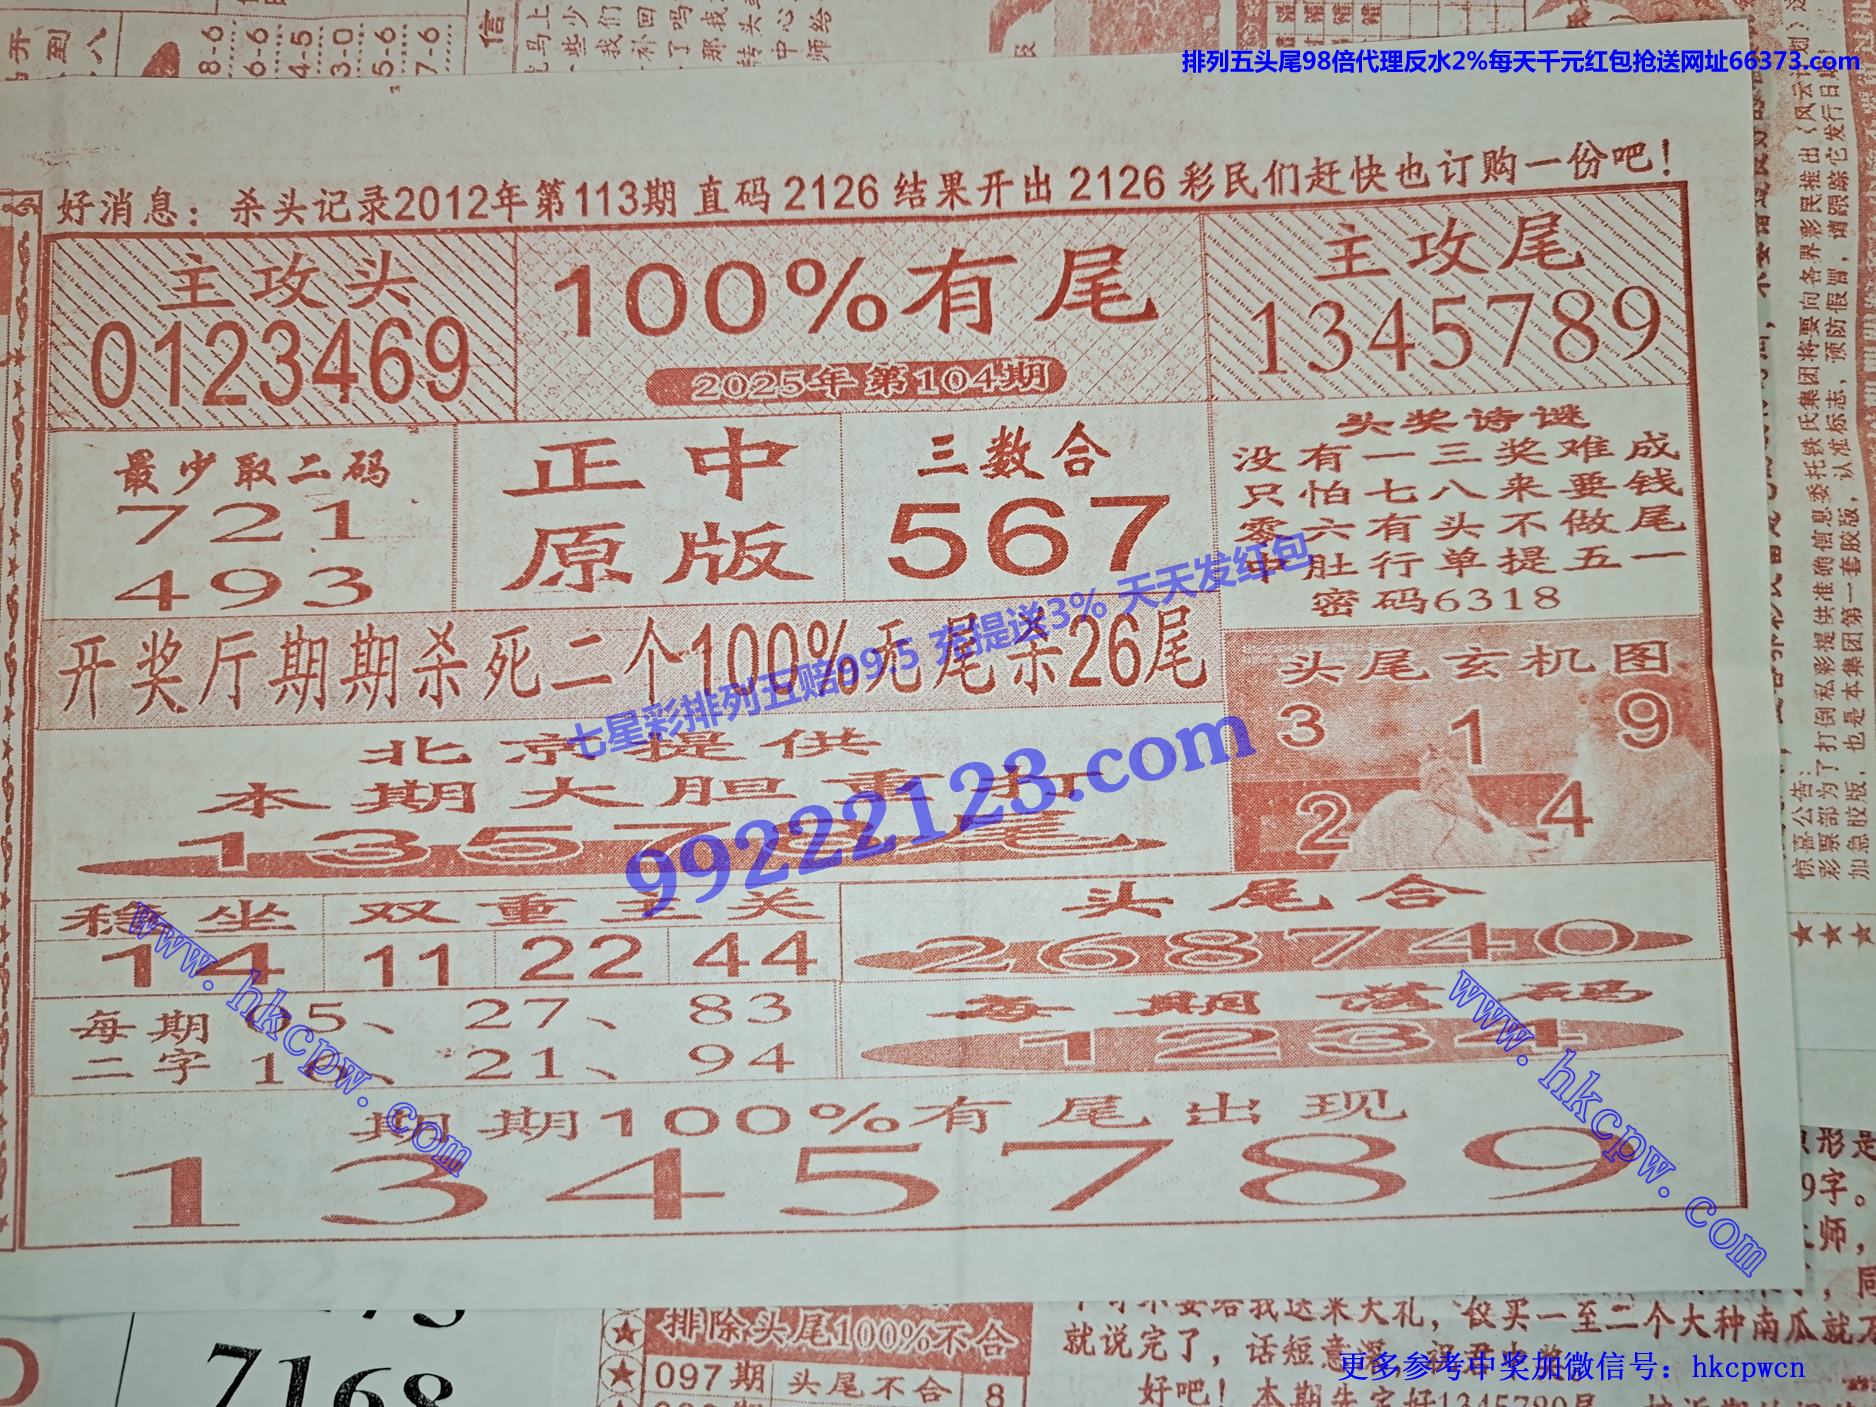 排列五头尾98倍代理反水2%每天千元红包抢送网址66373.com
好消息：杀头记录2012年第113期 直码 2126 结果开出 2126 彩民们赶快也订购一份吧！
主攻头
0123469
100%有尾
2025年 第104期
主攻尾
1345789
最少取二码
721
493
正中
原版
三数合
567
头奖诗谜
没有一三奖难成
只怕七八来要钱
零六有头不做尾
中肚行单提五一
密码6318
开奖厅期期杀死二个100%无尾杀26尾
七星彩排列五赔99.5 充提送3% 天天发红包
99222123.com
头尾玄机图
3 1 9
2 4
北京提供
本期大胆重打
13578尾
稳坐 双重主关
14 11 22 44
头尾合
268740
每期 05、 27、 83
二字 16、 21、 94
每期落码
1234
期期100%有尾出现
1345789
www.hkcpw.com
www.hkcpw.com
惊喜公告：
7168
排除头尾100%不合
097期 头尾不合 8
就说完了，话短意深，
更多参考中奖加微信号：hkcpwcn